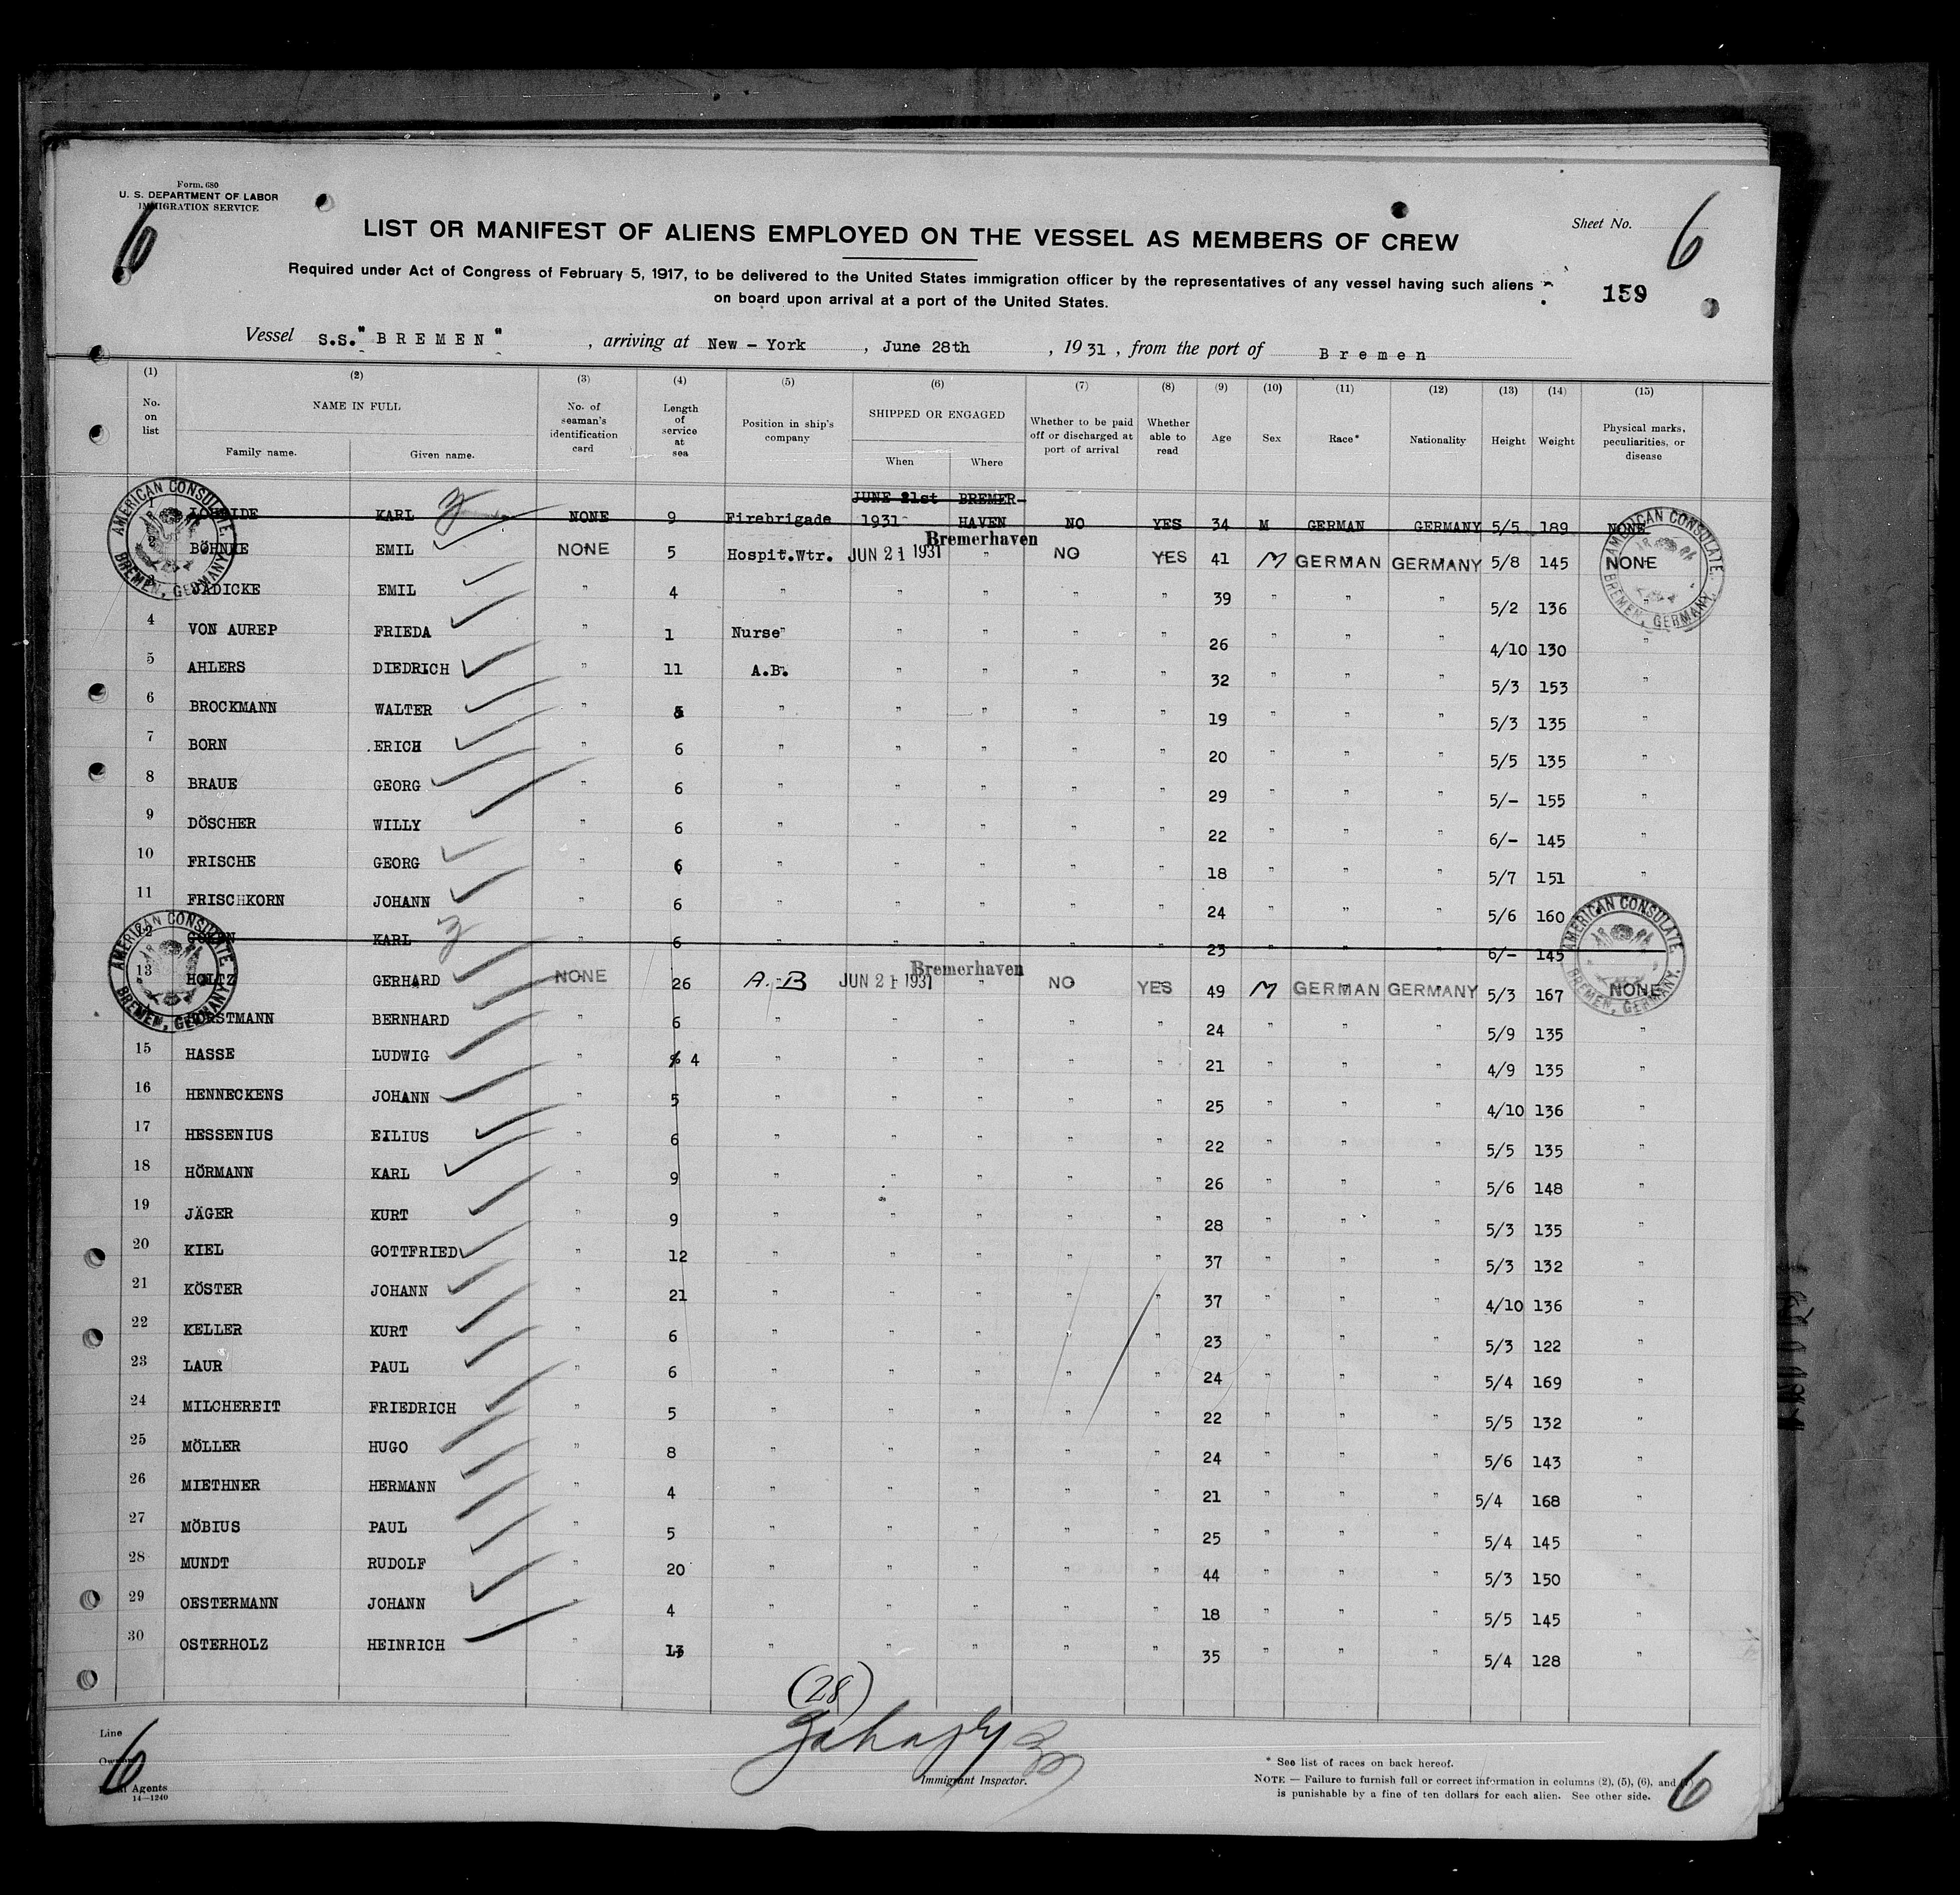 Form 680
U. S. DEPARTMENT OF LABOR
IMMIGRATION SERVICE
6
LIST OR MANIFEST OF ALIENS EMPLOYED ON THE VESSEL AS MEMBERS OF CREW
Sheet No. 6
Required under Act of Congress of February 5, 1917, to be delivered to the United States immigration officer by the representatives of any vessel having such aliens
on board upon arrival at a port of the United States.
159
Vessel S.S. "BREMEN", arriving at New-York, June 28th, 1931, from the port of Bremen
(1) (2) (3) (4) (5) (6) (7) (8) (9) (10) (11) (12) (13) (14) (15)
No. on list NAME IN FULL Family name. Given name. No. of seaman's identification card Length of service at sea Position in ship's company SHIPPED OR ENGAGED When Where Whether to be paid off or discharged at port of arrival Whether able to read Age Sex Race* Nationality Height Weight Physical marks, peculiarities, or disease
AMERICAN CONSULATE. BREMEN, GERMANY.
AMERICAN CONSULATE. BREMEN, GERMANY.
KARL NONE 9 Firebrigade JUNE 21st 1931 BREMER-HAVEN NO YES 34 M GERMAN GERMANY 5/5 189 NONE
2 BÖHNKE EMIL NONE 5 Hospit.Wtr. JUN 21 1931 Bremerhaven " NO YES 41 M GERMAN GERMANY 5/8 145 NONE
JÄDICKE EMIL " 4 " " " " " 39 " " " 5/2 136 "
4 VON AUREP FRIEDA " 1 Nurse " " " " " 26 " " " 4/10 130 "
5 AHLERS DIEDRICH " 11 A.B. " " " " 32 " " " 5/3 153 "
6 BROCKMANN WALTER " 5 " " " " " 19 " " " 5/3 135 "
7 BORN ERICH " 6 " " " " " 20 " " " 5/5 135 "
8 BRAUE GEORG " 6 " " " " " 29 " " " 5/- 155 "
9 DÖSCHER WILLY " 6 " " " " " 22 " " " 6/- 145 "
10 FRISCHE GEORG " 6 " " " " " 18 " " " 5/7 151 "
11 FRISCHKORN JOHANN " 6 " " " " " 24 " " " 5/6 160
AMERICAN CONSULATE. BREMEN, GERMANY.
AMERICAN CONSULATE. BREMEN, GERMANY.
KARL " 6 " " " " " 23 " " " 6/- 145
13 HOLTZ GERHARD NONE 26 A.B JUN 21 1931 Bremerhaven " NO YES 49 M GERMAN GERMANY 5/3 167 NONE
BERNHARD 6 " " " " " 24 " " " 5/9 135 "
15 HASSE LUDWIG " 4 " " " " " 21 " " " 4/9 135 "
16 HENNECKENS JOHANN " 5 " " " " " 25 " " " 4/10 136 "
17 HESSENIUS EILIUS " 6 " " " " " 22 " " " 5/5 135 "
18 HÖRMANN KARL " 9 " " " " " 26 " " " 5/6 148 "
19 JÄGER KURT " 9 " " " " " 28 " " " 5/3 135 "
20 KIEL GOTTFRIED " 12 " " " " " 37 " " " 5/3 132 "
21 KÖSTER JOHANN " 21 " " " " " 37 " " " 4/10 136 "
22 KELLER KURT " 6 " " " " " 23 " " " 5/3 122 "
23 LAUR PAUL " 6 " " " " " 24 " " " 5/4 169 "
24 MILCHEREIT FRIEDRICH " 5 " " " " " 22 " " " 5/5 132 "
25 MÖLLER HUGO " 8 " " " " " 24 " " " 5/6 143 "
26 MIETHNER HERMANN " 4 " " " " " 21 " " " 5/4 168 "
27 MÖBIUS PAUL " 5 " " " " " 25 " " " 5/4 145 "
28 MUNDT RUDOLF " 20 " " " " " 44 " " " 5/3 150 "
29 OESTERMANN JOHANN " 4 " " " " " 18 " " " 5/5 145 "
30 OSTERHOLZ HEINRICH " 13 " " " " " 35 " " " 5/4 128 "
(28)
Line
Immigrant Inspector.
Agents
14—1240
6
* See list of races on back hereof.
NOTE — Failure to furnish full or correct information in columns (2), (5), (6), and
is punishable by a fine of ten dollars for each alien. See other side.
6